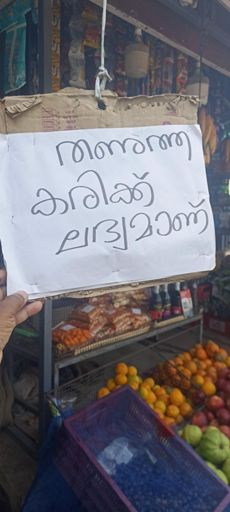 തണുത്ത
കരിക്ക്
ലഭ്യമാണ്